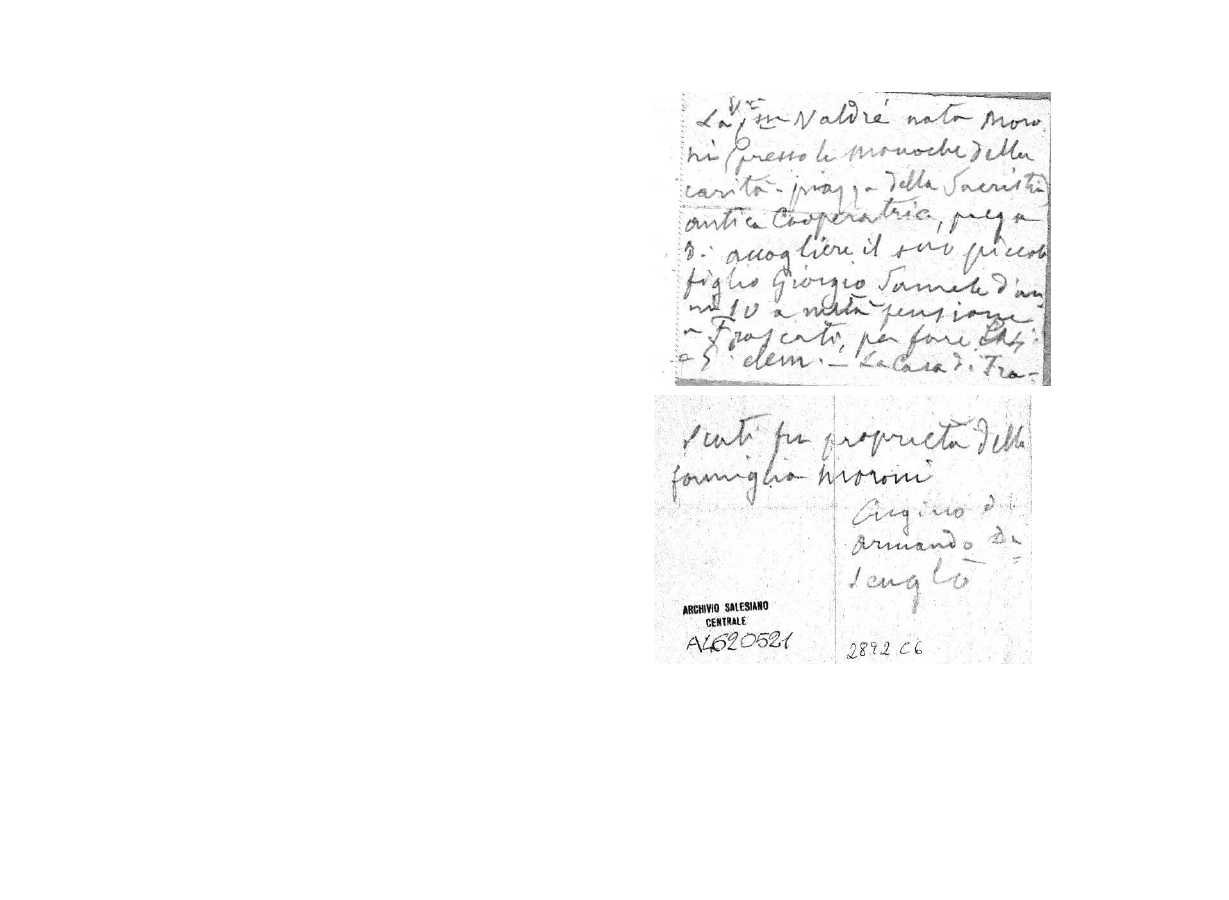 La V.va Naldré nata Moro
ni (presso le monache della
carità - piazza della Sacristia
antica Cooperatrice, prega
di accogliere il suo piccolo
figlio Giorgio d'an
ni 10 a metà pensione
a Frascati, per fare
elem. — La Casa di Fra-
scati fu proprietà della
famiglia Moroni
Cugino di
Armando
ARCHIVIO SALESIANO
CENTRALE
A4620521
2892 C6